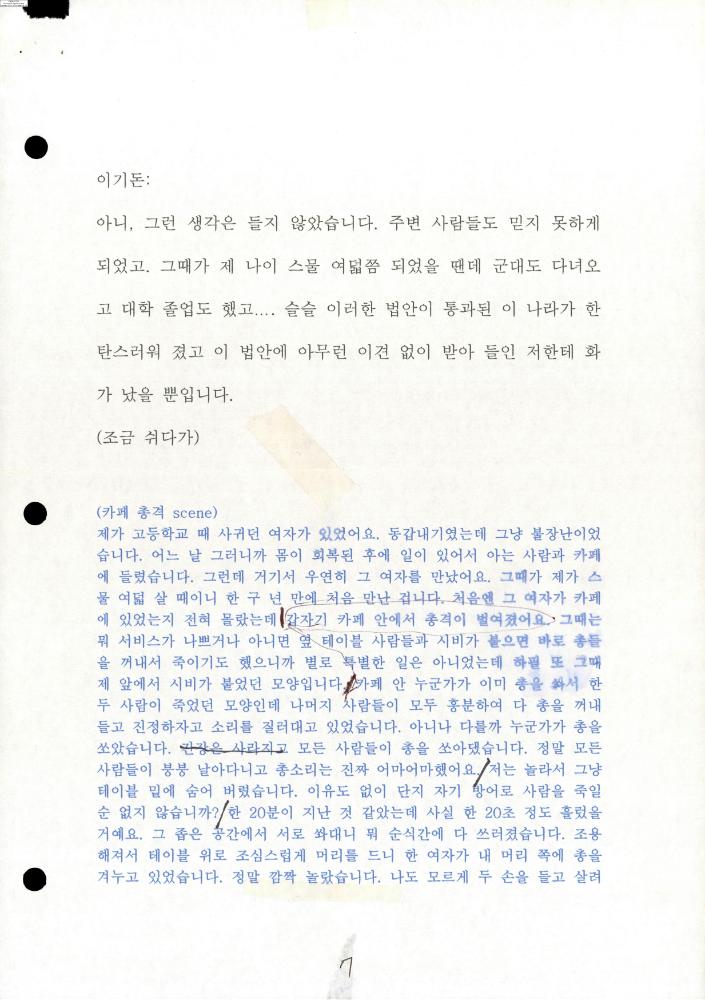 이기돈:
아니, 그런 생각은 들지 않았습니다. 주변 사람들도 믿지 못하게
되었고. 그때가 제 나이 스물 여덟쯤 되었을 땐데 군대도 다녀오
고 대학 졸업도 했고.... 슬슬 이러한 법안이 통과된 이 나라가 한
탄스러워 졌고 이 법안에 아무런 이견 없이 받아 들인 저한테 화
가 났을 뿐입니다.
(조금 쉬다가)
(카페 총격 scene)
제가 고등학교 때 사귀던 여자가 있었어요. 동갑내기였는데 그냥 불장난이었
습니다. 어느 날 그러니까 몸이 회복된 후에 일이 있어서 아는 사람과 카페
에 들렀습니다. 그런데 거기서 우연히 그 여자를 만났어요. 그때가 제가 스
물 여덟 살 때이니 한 구 년 만에 처음 만난 겁니다. 처음엔 그 여자가 카페
에 있었는지 전혀 몰랐는데 갑자기 카페 안에서 총격이 벌여졌어요. 그때는
뭐 서비스가 나쁘거나 아니면 옆 테이블 사람들과 시비가 붙으면 바로 총들
을 꺼내서 죽이기도 했으니까 별로 특별한 일은 아니었는데 하필 또 그때
제 앞에서 시비가 붙었던 모양입니다. 카페 안 누군가가 이미 총을 쏴서 한
두 사람이 죽었던 모양인데 나머지 사람들이 모두 흥분하여 다 총을 꺼내
들고 진정하자고 소리를 질러대고 있었습니다. 아니나 다를까 누군가가 총을
쏘았습니다. 긴장은 사라지고 모든 사람들이 총을 쏘아댔습니다. 정말 모든
사람들이 붕붕 날아다니고 총소리는 진짜 어마어마했어요. 저는 놀라서 그냥
테이블 밑에 숨어 버렸습니다. 이유도 없이 단지 자기 방어로 사람을 죽일
순 없지 않습니까? 한 20분이 지난 것 같았는데 사실 한 20초 정도 흘렀을
거예요. 그 좁은 공간에서 서로 쏴대니 뭐 순식간에 다 쓰러졌습니다. 조용
해져서 테이블 위로 조심스럽게 머리를 드니 한 여자가 내 머리 쪽에 총을
겨누고 있었습니다. 정말 깜짝 놀랐습니다. 나도 모르게 두 손을 들고 살려
7